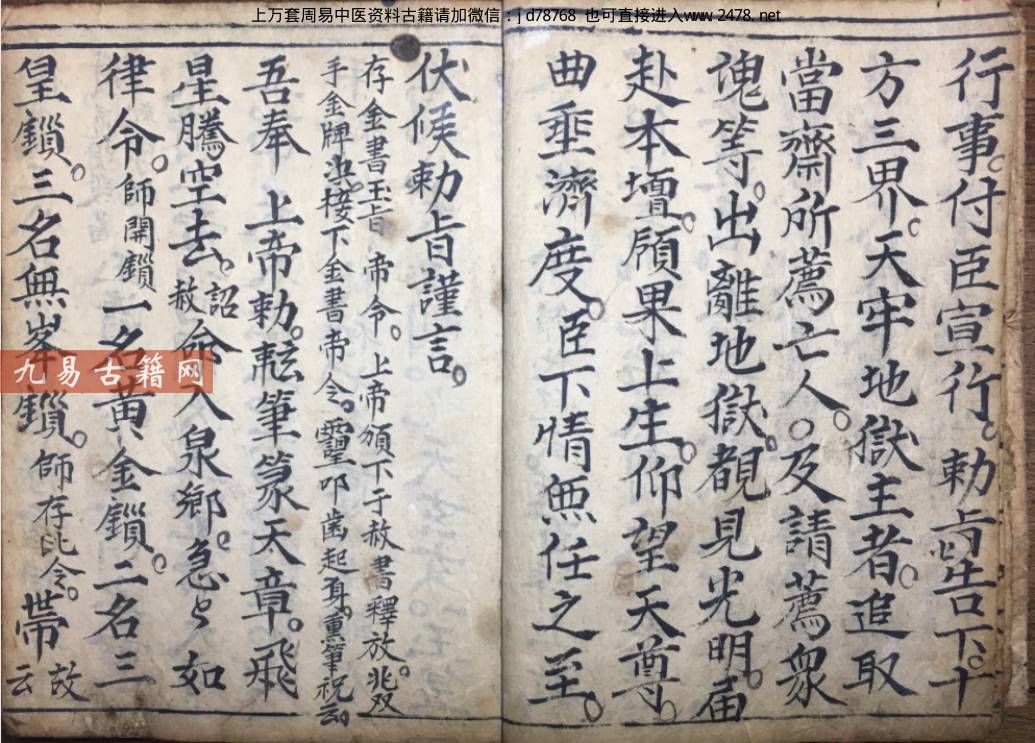 上万套周易中医资料古籍请加微信：jd78768 也可直接进入www.2478.net
行事。付臣宣行。勅旨告下。十
方三界。天牢地獄主者。追取
當齋所薦亡人。○及請薦衆
魂等。出離地獄。覩見光明。届
赴本壇。願果上生。仰望天尊。
曲垂濟度。臣下情無任之至。
伏候勅旨謹言。
存金書玉旨 帝令。上帝頒下于赦書釋放。兆双
手金牌 接下金書帝令。靈叩齒起身。薰筆祝云。
吾奉 上帝勅。 筆篆天章。飛
星騰空去。詔赦命入泉鄉。急々如
律令。師開鎖一名黃金鎖。二名三
皇鎖。三名無峯鎖。師存此令。帶故云
九易古籍网